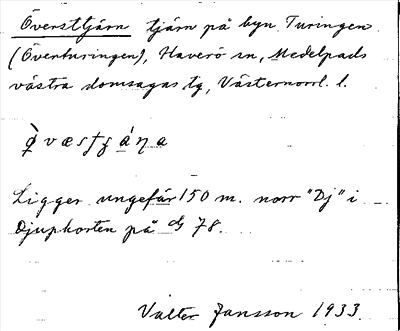 Översttjärn tjärn på byn Turingen
(Överturingen), Haverö sn, Medelpads
västra domsagas tg, Västernorrl. l.
Ligger ungefär 150 m. norr "Dj" i
Djupkorten på G 78.
Valter Jansson 1933.